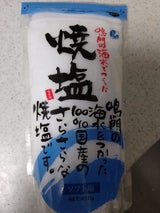 鳴門の海水でつくった
焼塩
鳴門の
海水をつかった
100%国産の
さらさらな
焼塩です。
ソフト塩